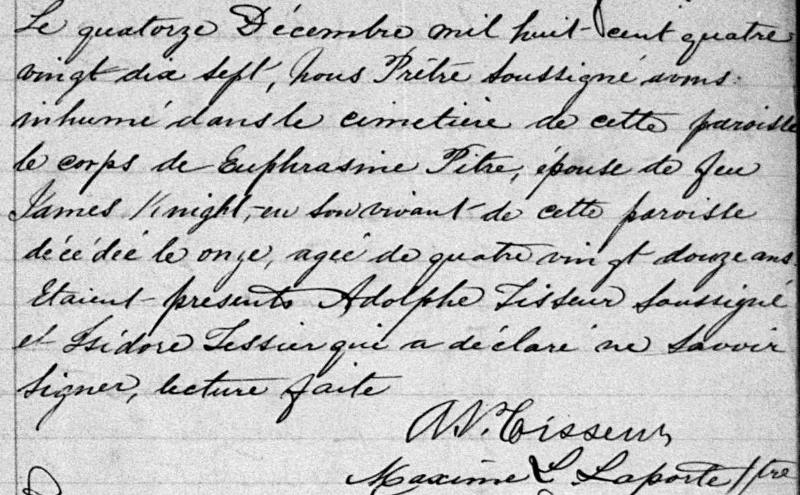 Le quatorze Décembre mil huit cent quatre
vingt dix sept, nous Prêtre soussigné avons
inhumé dans le cimetière de cette paroisse
le corps de Euphrasine Pitre, épouse de feu
James Knight, en son vivant de cette paroisse
décédée le onze, agée de quatre vingt douze ans.
Etaient presents Adolphe Tisseur soussigné
et Isidore Tessier qui a déclaré ne savoir
signer, lecture faite
Tisseur
Maxime L Laporte Ptre